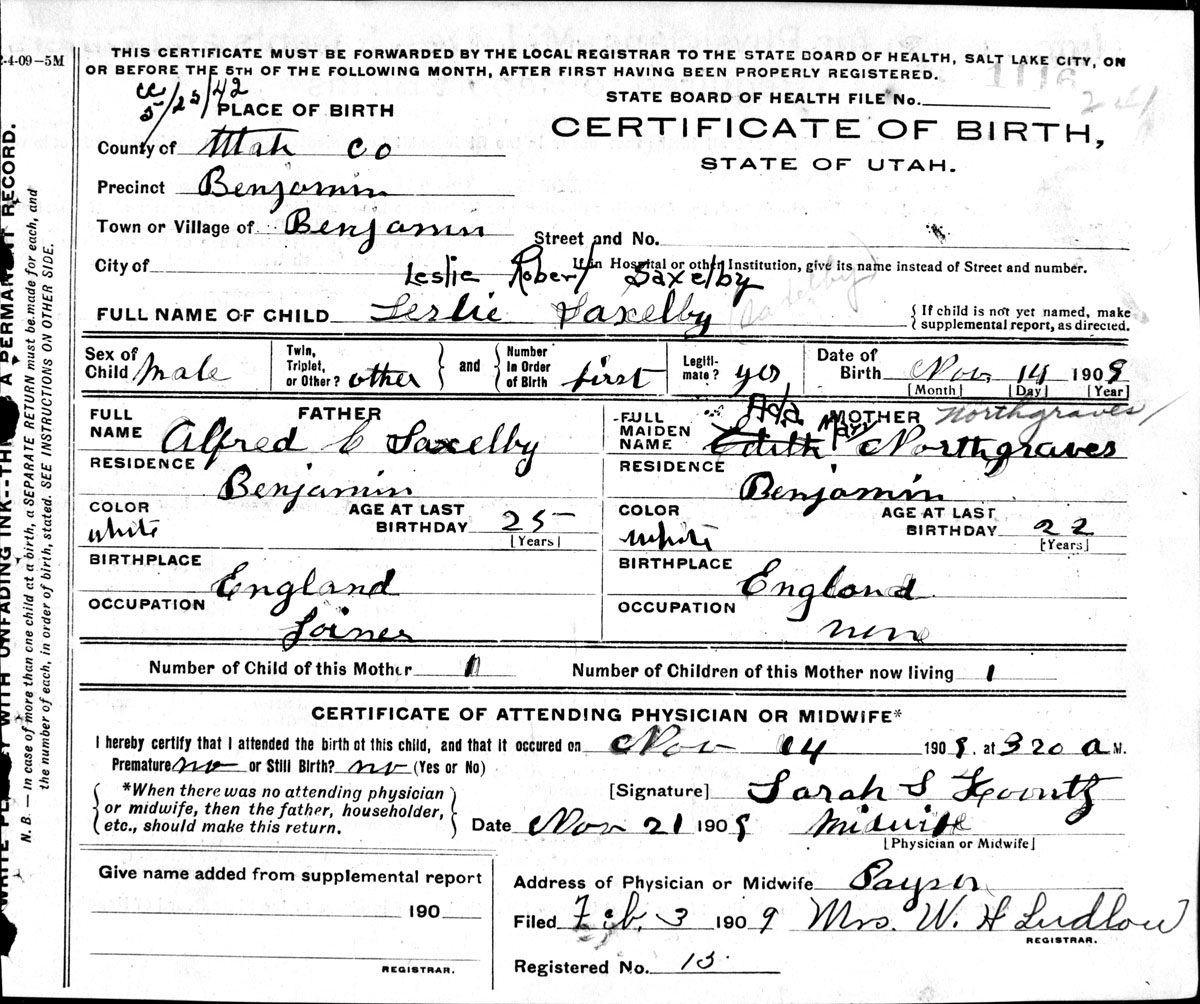 2-4-09-5M
THIS CERTIFICATE MUST BE FORWARDED BY THE LOCAL REGISTRAR TO THE STATE BOARD OF HEALTH, SALT LAKE CITY, ON
OR BEFORE THE 5TH OF THE FOLLOWING MONTH, AFTER FIRST HAVING BEEN PROPERLY REGISTERED.
5/25/42
PLACE OF BIRTH
STATE BOARD OF HEALTH FILE No.
CERTIFICATE OF BIRTH,
STATE OF UTAH.
County of Utah Co
Precinct Benjamin
Town or Village of Benjamin
Street and No.
City of
If in Hospital or other Institution, give its name instead of Street and number.
Leslie Robert Saxelby
FULL NAME OF CHILD Leslie Saxelby
{ If child is not yet named, make supplemental report, as directed.
Sex of Child Male
Twin, Triplet, or Other? other } and { Number In Order of Birth first
Legitimate? yes
Date of Birth Nov. 14 1909
[Month] [Day] [Year]
FATHER
FULL NAME Alfred C Saxelby
RESIDENCE Benjamin
COLOR white
AGE AT LAST BIRTHDAY 25
[Years]
BIRTHPLACE England
OCCUPATION Joiner
MOTHER Northgraves
Ada May
FULL MAIDEN NAME Edith Northgraves
RESIDENCE Benjamin
COLOR white
AGE AT LAST BIRTHDAY 22
[Years]
BIRTHPLACE England
OCCUPATION none
Number of Child of this Mother 1
Number of Children of this Mother now living 1
CERTIFICATE OF ATTENDING PHYSICIAN OR MIDWIFE*
I hereby certify that I attended the birth of this child, and that it occured on Nov 14 1909. at 320 a M.
Premature no or Still Birth? no (Yes or No)
*When there was no attending physician
or midwife, then the father, householder,
etc., should make this return.
[Signature] Sarah S Koontz
Date Nov 21 1909 Midwife
[Physician or Midwife]
Give name added from supplemental report
190
REGISTRAR.
Address of Physician or Midwife Payson
Filed Feb. 3 1909 Mrs. W. H Ludlow
REGISTRAR.
Registered No. 13
N. B.— In case of more than one child at a birth, a SEPARATE RETURN must be made for each, and
the number of each, in order of birth, stated. SEE INSTRUCTIONS ON OTHER SIDE.
WITH UNFADING INK--THIS A PERMANENT RECORD.